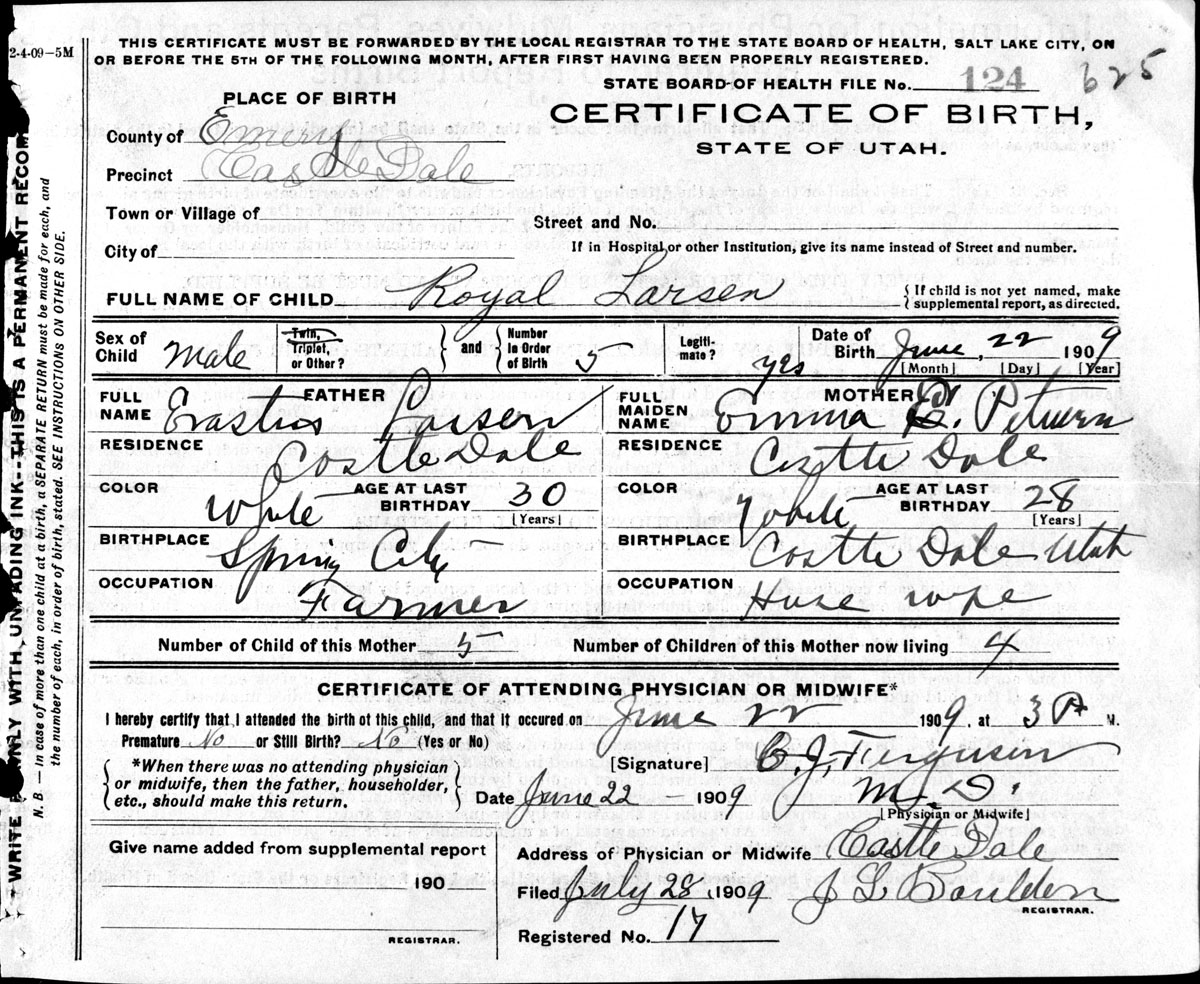 2-4-09-5M
THIS CERTIFICATE MUST BE FORWARDED BY THE LOCAL REGISTRAR TO THE STATE BOARD OF HEALTH, SALT LAKE CITY, ON
OR BEFORE THE 5TH OF THE FOLLOWING MONTH, AFTER FIRST HAVING BEEN PROPERLY REGISTERED.
STATE BOARD OF HEALTH FILE No. 124 625
PLACE OF BIRTH
CERTIFICATE OF BIRTH,
STATE OF UTAH.
County of Emery
Precinct Castle Dale
Town or Village of
Street and No.
City of
If in Hospital or other Institution, give its name instead of Street and number.
FULL NAME OF CHILD Royal Larsen { If child is not yet named, make supplemental report, as directed.
Sex of Child Male Twin, Triplet, or Other? } and { Number in Order of Birth 5 Legitimate? yes Date of Birth June 22 1909
[Month] [Day] [Year]
FATHER
FULL NAME Erastus Larsen
MOTHER
FULL MAIDEN NAME Emma
RESIDENCE Castle Dale
RESIDENCE Castle Dale
COLOR White AGE AT LAST BIRTHDAY 30 [Years]
COLOR White AGE AT LAST BIRTHDAY 28 [Years]
BIRTHPLACE Spring City
BIRTHPLACE Castle Dale Utah
OCCUPATION Farmer
OCCUPATION House wife
Number of Child of this Mother 5 Number of Children of this Mother now living 4
CERTIFICATE OF ATTENDING PHYSICIAN OR MIDWIFE*
I hereby certify that I attended the birth of this child, and that it occured on June 22 1909, at 3 P M.
Premature No or Still Birth? No (Yes or No)
[Signature] B. J. Ferguson
{ *When there was no attending physician
or midwife, then the father, householder,
etc., should make this return. }
Date June 22 - 1909 M.D.
[Physician or Midwife]
Give name added from supplemental report
190
REGISTRAR.
Address of Physician or Midwife Castle Dale
Filed July 28, 1909 J
REGISTRAR.
Registered No. 17
WRITE PLAINLY WITH UNFADING INK--THIS IS A PERMANENT RECORD
N. B.—In case of more than one child at a birth, a SEPARATE RETURN must be made for each, and
the number of each, in order of birth, stated. SEE INSTRUCTIONS ON OTHER SIDE.